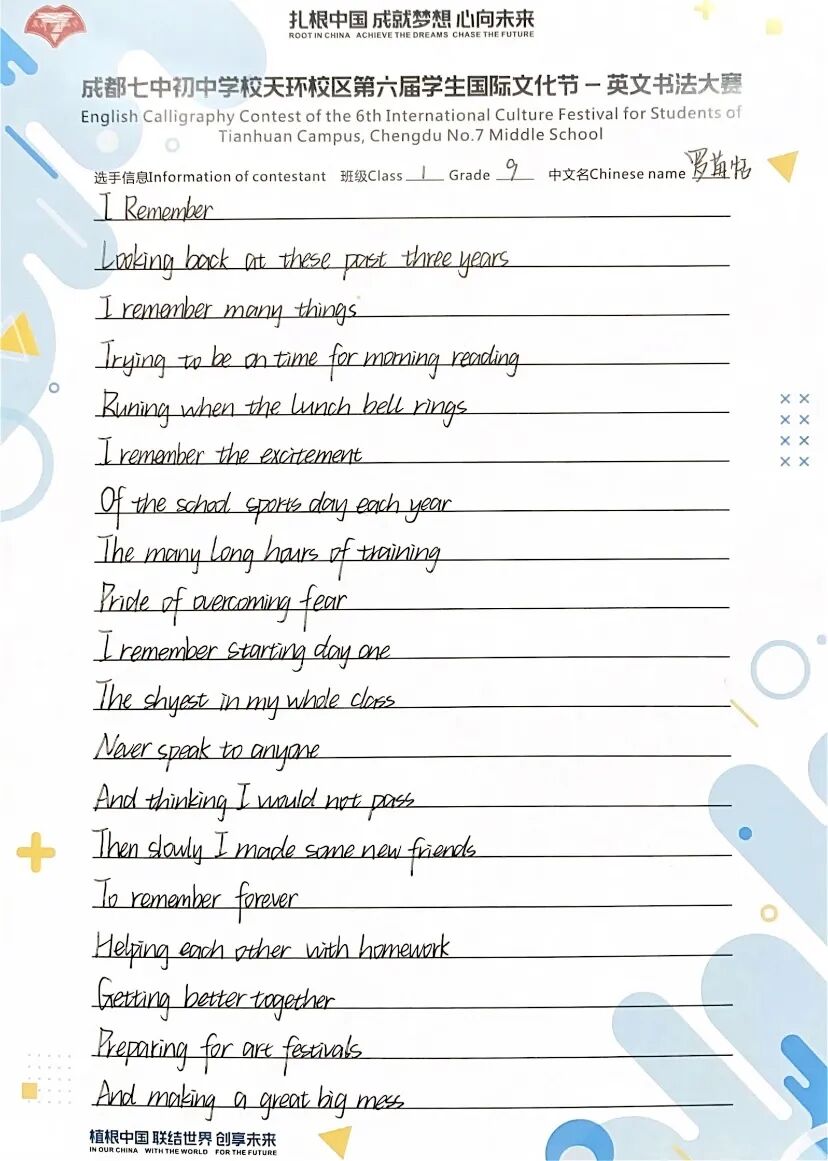 扎根中国 成就梦想 心向未来
ROOT IN CHINA ACHIEVE THE DREAMS CHASE THE FUTURE
成都七中初中学校天环校区第六届学生国际文化节 – 英文书法大赛
English Calligraphy Contest of the 6th International Culture Festival for Students of
Tianhuan Campus, Chengdu No.7 Middle School
选手信息Information of contestant 班级Class 1 Grade 9 中文名Chinese name 罗
I Remember
Looking back at these past three years
I remember many things
Trying to be on time for morning reading
Runing when the lunch bell rings
I remember the excitement
Of the school sports day each year
The many long hours of training
Pride of overcoming fear
I remember starting day one
The shyest in my whole class
Never speak to anyone
And thinking I would not pass
Then slowly I made some new friends
To remember forever
Helping each other with homework
Getting better together
Preparing for art festivals
And making a great big mess
植根中国 联结世界 创享未来
IN OUR CHINA WITH THE WORLD FOR THE FUTURE